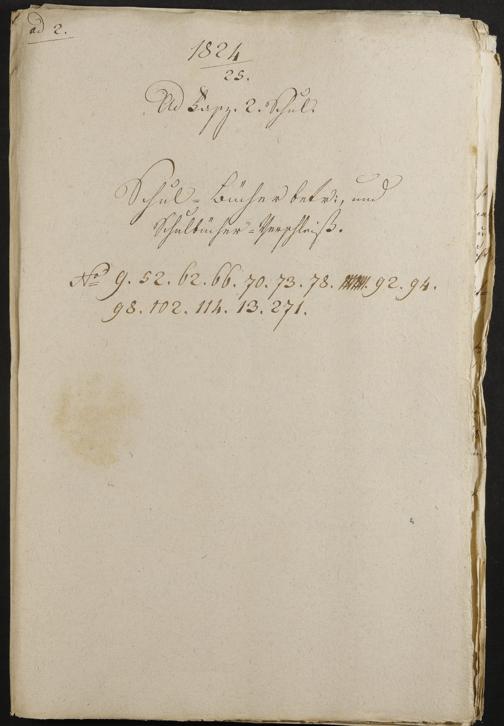 ad 2.
1824
25.
Ad 2. Schul.
Schul-Bücher betr:, und
Schulbücher-Verschleiß.
No 9. 52. 62. 66. 70. 73. 78. 92. 94.
98. 102. 114. 13. 271.